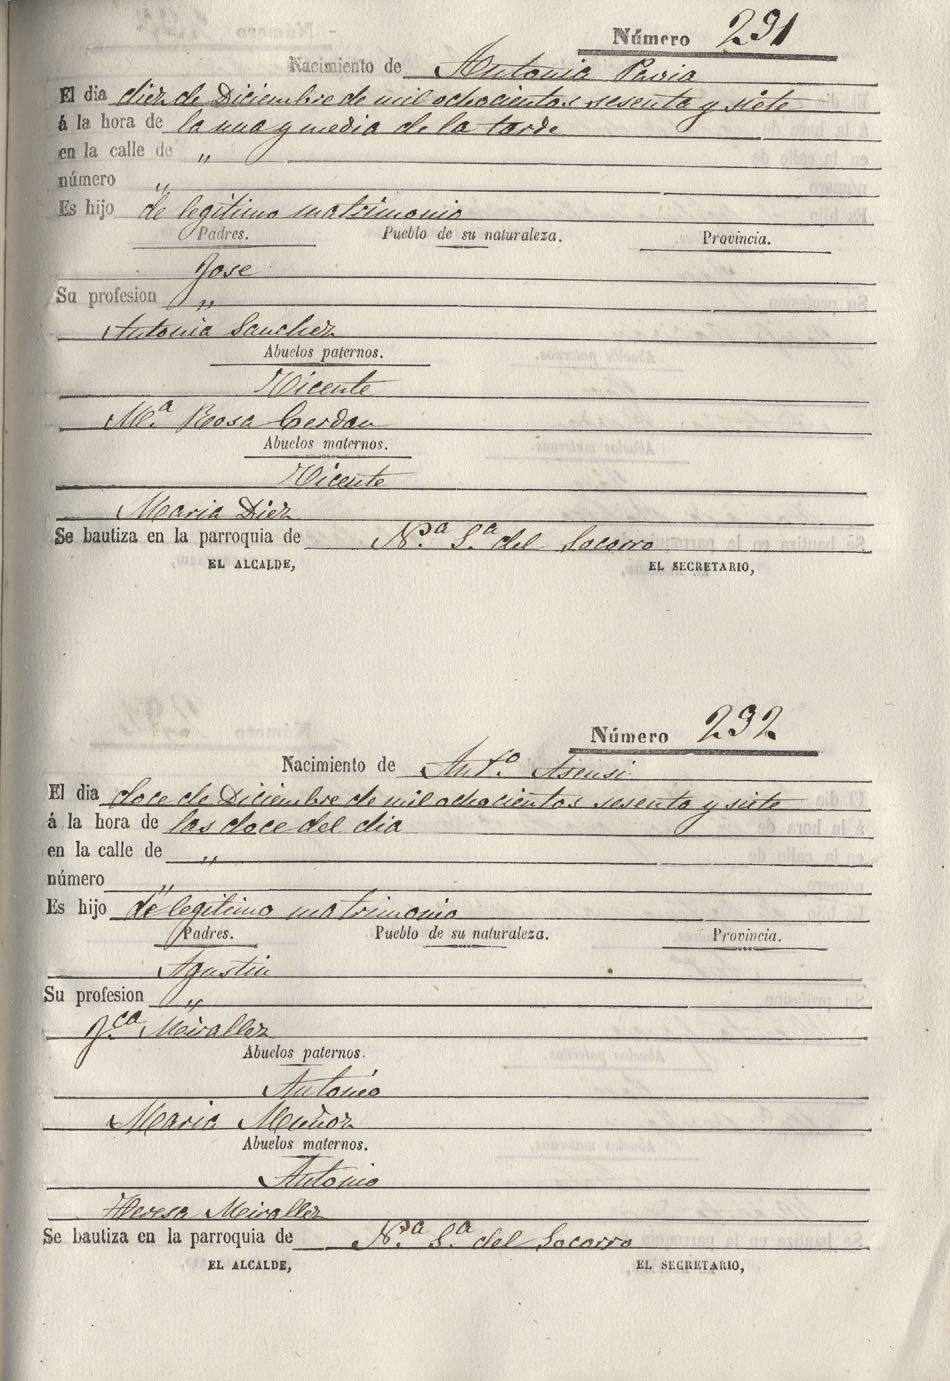 Número 231
Nacimiento de Antonia Pavia
El dia diez de Diciembre de mil ochocientos sesenta y siete
á la hora de la una y media de la tarde
en la calle de "
número "
Es hijo de legitimo matrimonio
Padres. Pueblo de su naturaleza. Provincia.
Jose
Su profesion "
Antonia Sanchez
Abuelos paternos.
Vicente
Mª Rosa Cerdan
Abuelos maternos.
Vicente
Maria Diez
Se bautiza en la parroquia de Nª Sª del Socorro
EL ALCALDE, EL SECRETARIO,
Número 232
Nacimiento de Antº Asensi
El dia doce de Diciembre de mil ochocientos sesenta y siete
á la hora de las doce del dia
en la calle de "
número "
Es hijo de legitimo matrimonio
Padres. Pueblo de su naturaleza. Provincia.
Agustin
Su profesion "
Jca Mirallez
Abuelos paternos.
Antonio
Maria Muñoz
Abuelos maternos.
Antonio
Theresa Mirallez
Se bautiza en la parroquia de Nª Sª del Socorro
EL ALCALDE, EL SECRETARIO,